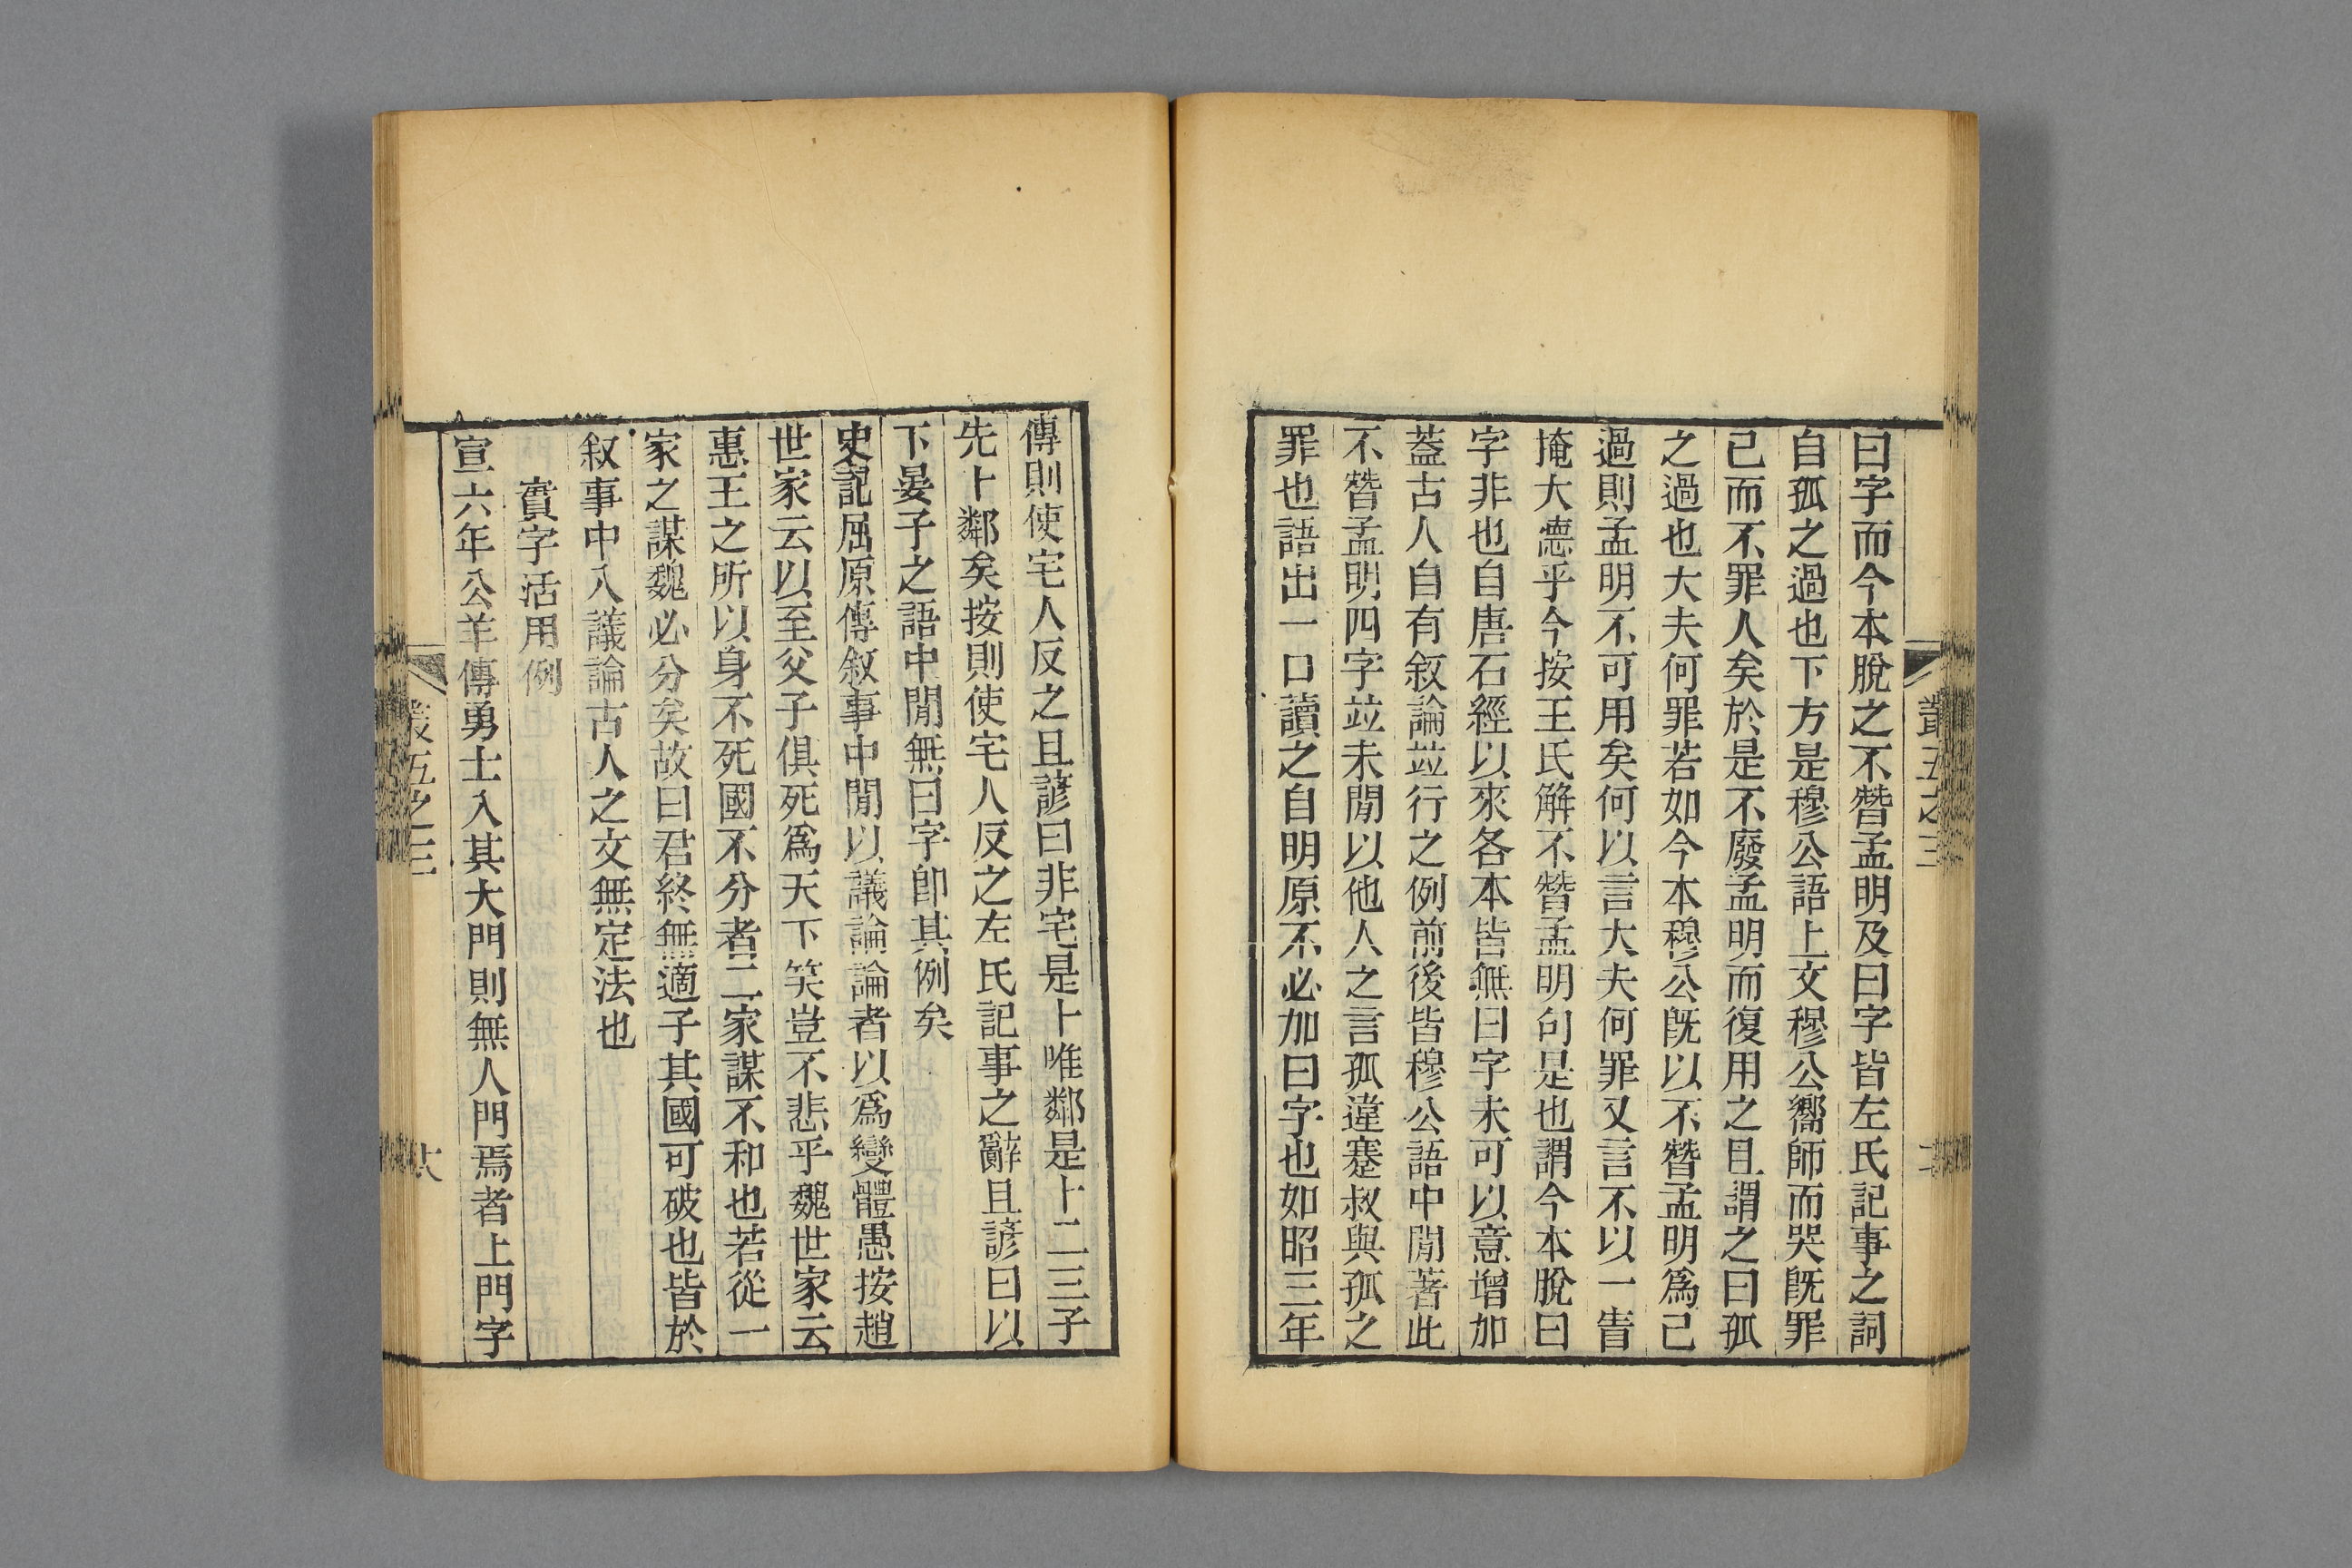 曰字而今本脫之不朁孟明及曰字皆左氏記事之詞
自孤之過也下方是穆公語上文穆公嚮師而哭旣罪
己而不罪人矣於是不廢孟明而復用之且謂之曰孤
之過也大夫何罪若如今本穆公旣以不朁孟明爲己
過則孟明不可用矣何以言大夫何罪又言不以一眚
掩大德乎今按王氏解不朁孟明句是也謂今本脫曰
字非也自唐石經以來各本皆無曰字未可以意增加
蓋古人自有敘論竝行之例前後皆穆公語中閒著此
不朁孟明四字竝未閒以他人之言孤違蹇叔與孤之
罪也語出一口讀之自明原不必加曰字也如昭三年
傳則使宅人反之且諺曰非宅是卜唯鄰是卜二三子
先卜鄰矣按則使宅人反之左氏記事之辭且諺曰以
下晏子之語中閒無曰字卽其例矣
史記屈原傳敘事中閒以議論論者以爲變體愚按趙
世家云以至父子俱死爲天下笑豈不悲乎魏世家云
惠王之所以身不死國不分者二家謀不和也若從一
家之謀魏必分矣故曰君終無適子其國可破也皆於
敘事中入議論古人之文無定法也
實字活用例
宣六年公羊傳勇士入其大門則無人門焉者上門字
叢五之三